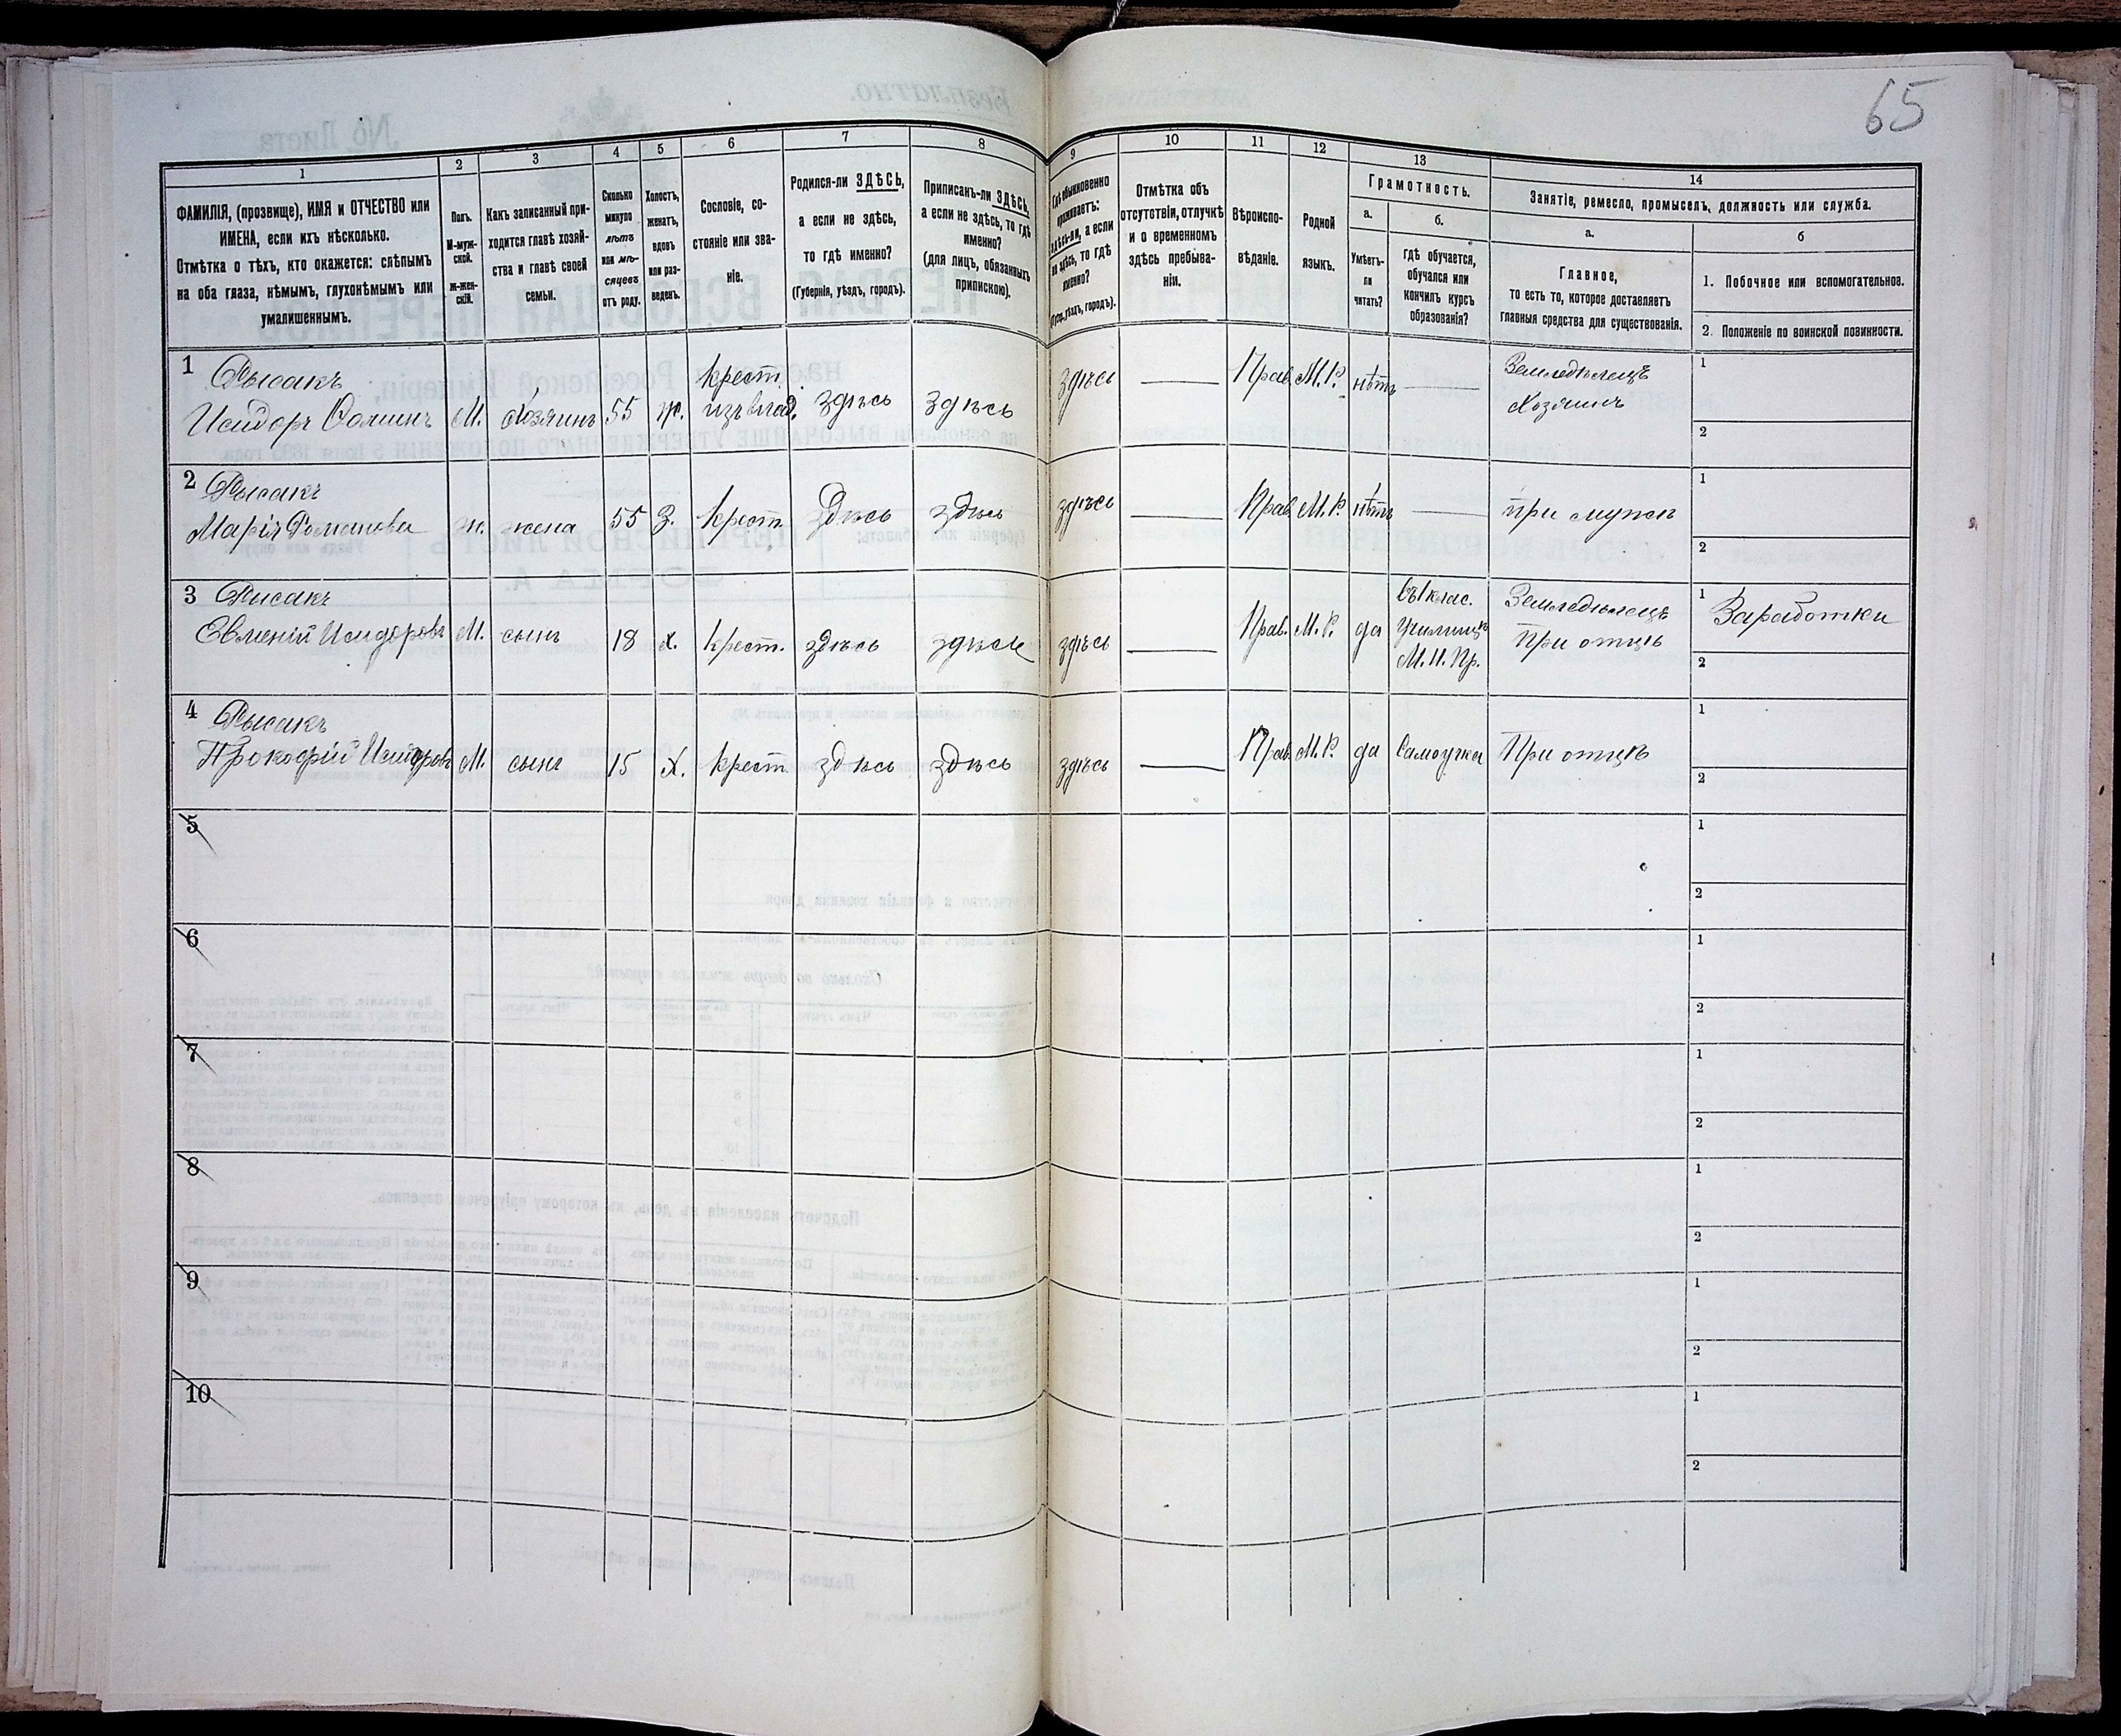 65
1
2
3
4
5
6
7
8
9
10
11
12
13
14
ФАМИЛІЯ, (прозвище), ИМЯ и ОТЧЕСТВО или
ИМЕНА, если ихъ нѣсколько.
Отмѣтка о тѣхъ, кто окажется: слѣпымъ
на оба глаза, нѣмымъ, глухонѣмымъ или
умалишеннымъ.
Полъ.
М-муж-
ской.
ж-жен-
скій.
Какъ записанный при-
ходится главѣ хозяй-
ства и главѣ своей
семьи.
Сколько
минуло
лѣтъ
или мѣ-
сяцевъ
отъ роду.
Холостъ,
женатъ,
вдовъ
или раз-
веденъ.
Сословіе, со-
стояніе или зва-
ніе.
Родился-ли ЗДѢСЬ,
а если не здѣсь,
то гдѣ именно?
(Губернія, уѣздъ, городъ).
Приписанъ-ли ЗДѢСЬ,
а если не здѣсь, то гдѣ
именно?
(для лицъ, обязанныхъ
припискою).
Гдѣ обыкновенно
проживаетъ:
здѣсь-ли, а если
не здѣсь, то гдѣ
именно?
(Губ., уѣздъ, городъ).
Отмѣтка объ
отсутствіи, отлучкѣ
и о временномъ
здѣсь пребыва-
ніи.
Вѣроиспо-
вѣданіе.
Родной
языкъ.
Грамотность.
а.
б.
Умѣетъ-
ли
читать?
гдѣ обучается,
обучался или
кончилъ курсъ
образованія?
Занятіе, ремесло, промыселъ, должность или служба.
а.
б
Главное,
то есть то, которое доставляетъ
главныя средства для существованія.
1. Побочное или вспомогательное.
2. Положеніе по воинской повинности.
1 Рысакъ крест. здѣсь Прав. М.Р. нѣтъ Земледѣлецъ 1
Исидоръ М. Хозяинъ 55 ж. изъ влад. здѣсь здѣсь Хозяинъ
2
2 Рысакъ 1
Марія Романова ж. жена 55 З. крест. здѣсь здѣсь здѣсь Прав. М.Р. нѣтъ при мужѣ
2
3 Рысакъ въ 1 клас. Земледѣлецъ 1 Заработки
Евменій Исидоровъ М. сынъ 18 х. крест. здѣсь здѣсь здѣсь Прав. М.Р. да Училищѣ При отцѣ
М. Н. Пр. 2
4 Рысакъ 1
Прокофій Исидоровъ М. сынъ 15 Х. крест. здѣсь здѣсь здѣсь Прав. М.Р. да Самоучка При отцѣ
2
5 1
2
6 1
2
7 1
2
8 1
2
9 1
2
10 1
2